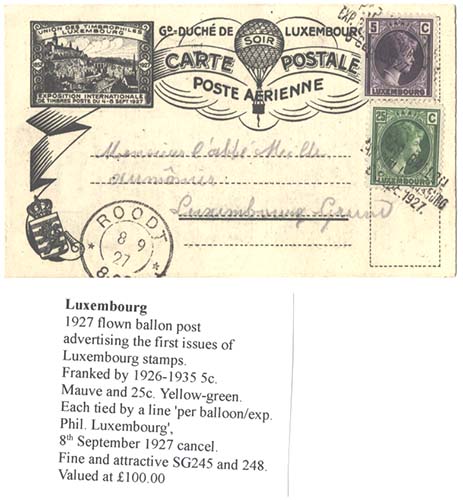 UNION DES TIMBROPHILES
LUXEMBOURG
1890
1927
EXPOSITION INTERNATIONALE
DE TIMBRES POSTE DU 4-8 SEPT 1927
GD-DUCHÉ DE LUXEMBOURG
SOIR
CARTE POSTALE
POSTE AÉRIENNE
5 C
LUXEMBOURG
25 C
LUXEMBOURG
1927.
Monsieur l'abbé
aumônier
Luxembourg-Grund
ROODT
8 9
27
Luxembourg
1927 flown ballon post
advertising the first issues of
Luxembourg stamps.
Franked by 1926-1935 5c.
Mauve and 25c. Yellow-green.
Each tied by a line 'per balloon/exp.
Phil. Luxembourg',
8th September 1927 cancel.
Fine and attractive SG245 and 248.
Valued at £100.00